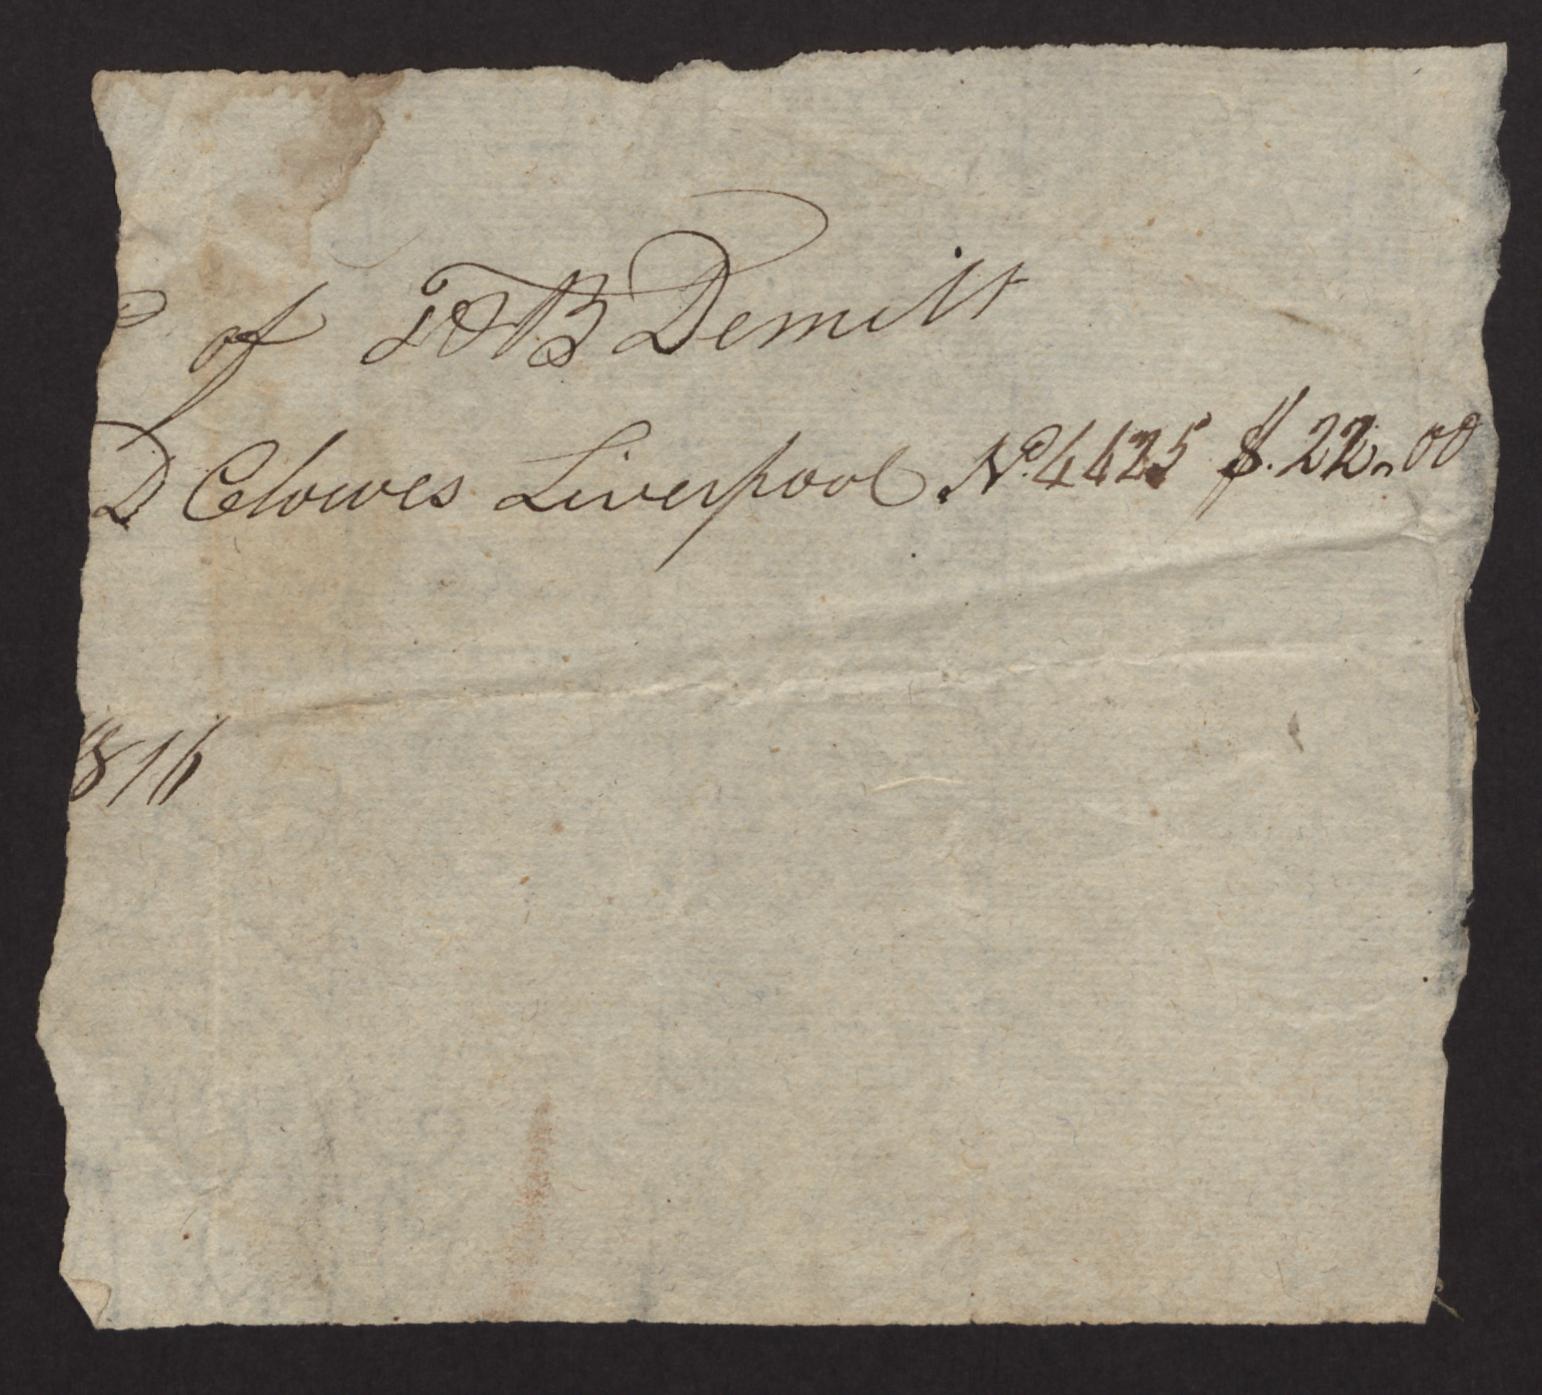 of T & B Demilt
D Clowes Liverpool No. 4425 $.22.00
1816